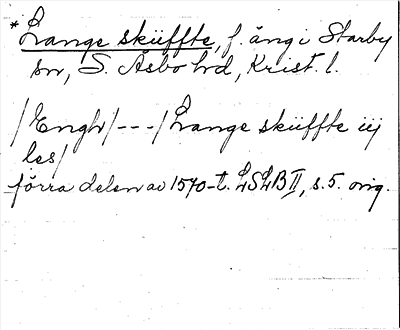 *Lange skiiffte, f. äng i Starby
sn, S. Åsbo hd, Krist. l.
/Enghr/---/Lange skiiffte iij
les/
förra delen av 1570-t. LSLB II, s. 5. orig.